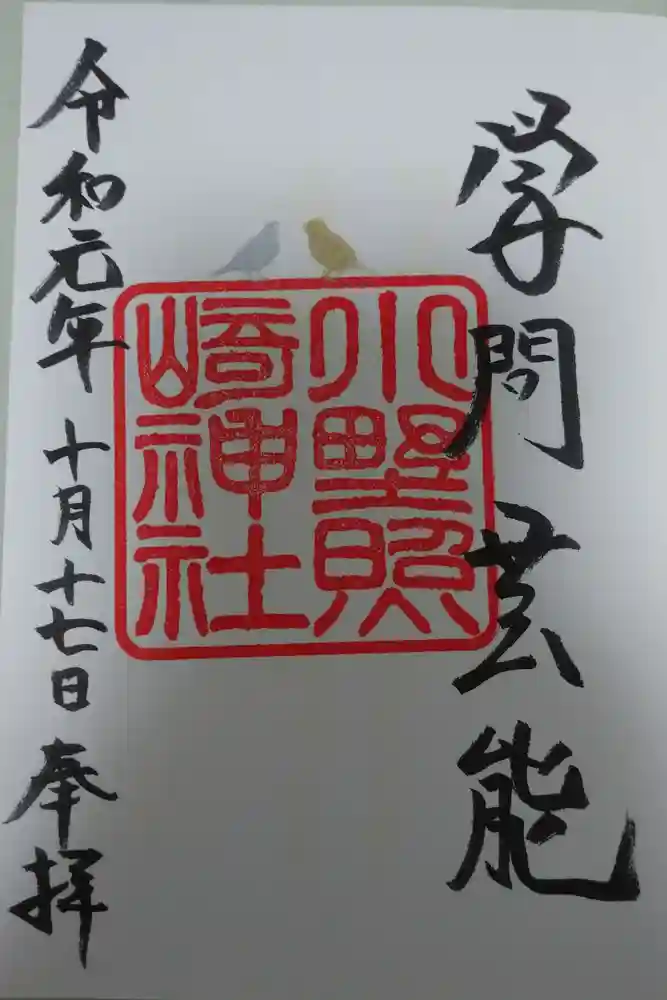 学問芸能
小野照
崎神社
令和元年 十月十七日 奉拝